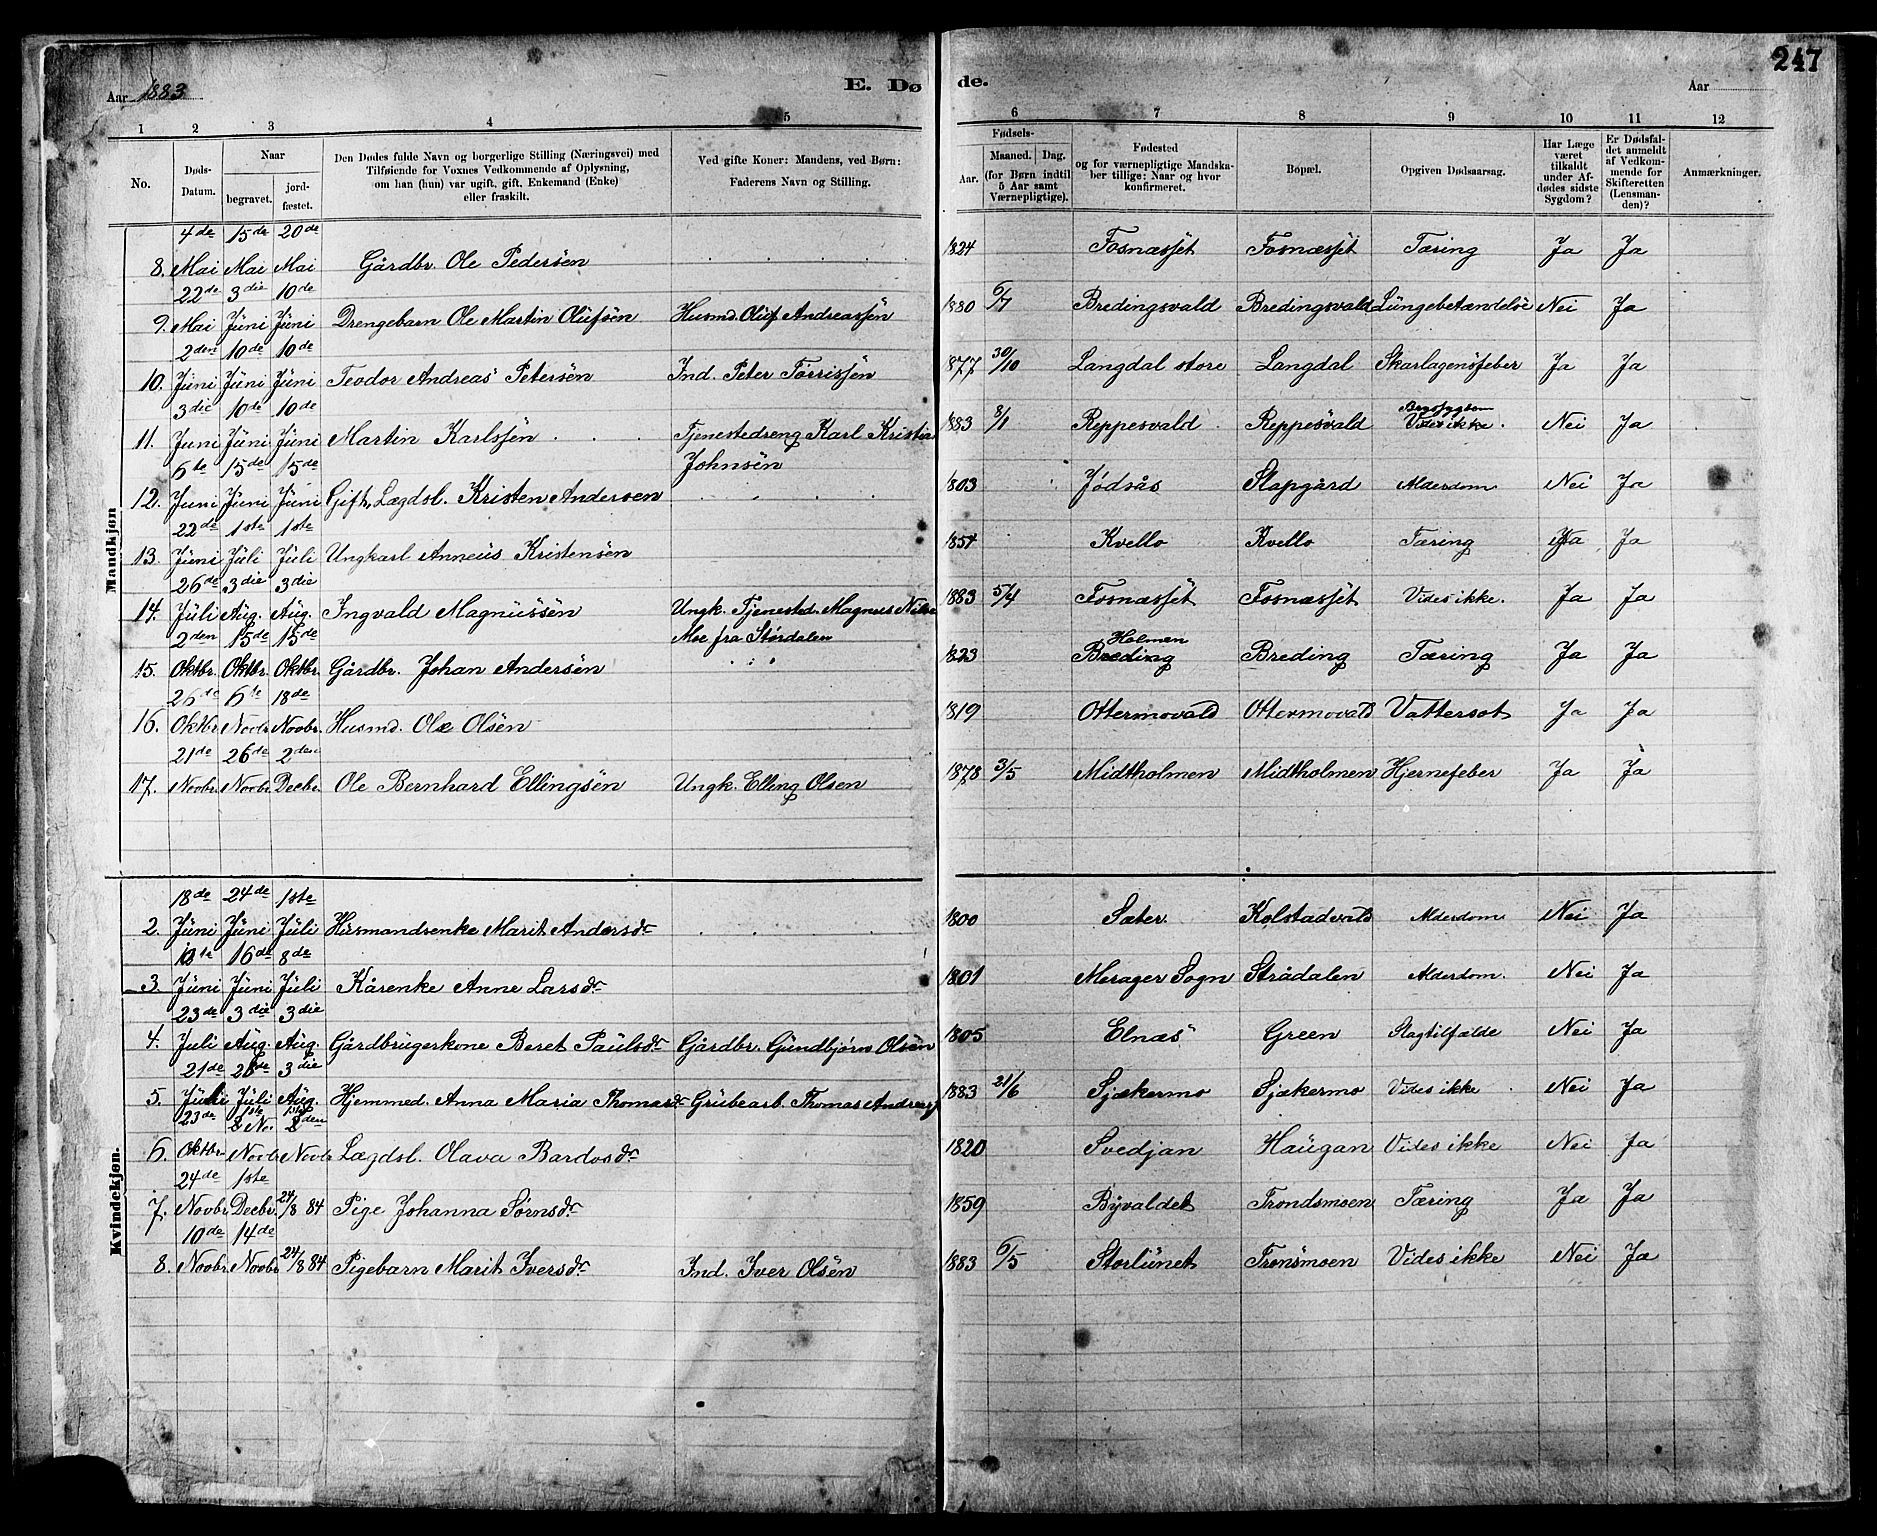 247
Aar 1883
E. Døde.
Aar
1 2 3 4 5 6 7 8 9 10 11 12
No.
Døds-Datum.
Naar
begravet.
jord-fæstet.
Den Dødes fulde Navn og borgerlige Stilling (Næringsvei) med
Tilføiende for Voxnes Vedkommende af Oplysning,
om han (hun) var ugift, gift, Enkemand (Enke)
eller fraskilt.
Ved gifte Koner: Mandens, ved Børn:
Faderens Navn og Stilling.
Fødsels-
Aar. Maaned. Dag.
(for Børn indtil
5 Aar samt
Værnepligtige).
Fødested
og for værnepligtige Mandska-
ber tillige: Naar og hvor
konfirmeret.
Bopæl.
Opgiven Dødsaarsag.
Har Læge
været
tilkaldt
under Af-
dødes sidste
Sygdom?
Er Dødsfal-
det anmeldt
af Vedkom-
mende for
Skifteretten
(Lensman-
den)?
Anmærkninger.
Mandkjøn
4de 15de 20de
8. Mai Mai Mai Gårdbr. Ole Pedersen 1824 Fosnæsset Fosnæsset Tæring Ja Ja
22de 3die 10de
9. Mai Juni Juni Drengebarn Ole Martin Olufsen Husmd. Oluf Andreassen 1880 6/7 Bredingsvald Bredingsvald Lungebetændelse Nei Ja
2den 10de 10de
10. Juni Juni Juni Teodor Andreas Petersen Ind. Peter Torrissen 1877 30/10 Langdal store Langdal Skarlagensfeber Ja Ja
3die 10de 10de
11. Juni Juni Juni Martin Karlssen Tjenestedreng Karl Kristian 1883 8/1 Reppesvald Reppesvald Vides ikke. Nei Ja
6te 15de 15de Johnsen
12. Juni Juni Juni Gift, Lægdsl. Kristen Andersen 1803 Jødsås Slapgård Alderdom Nei Ja
22de 1ste 1ste
13. Juni Juli Juli Ungkarl Anneus Kristensen 1854 Kvello Kvello Tæring Ja Ja
26de 3die 3die
14. Juli Aug. Aug. Ingvald Magnussen Ungk. Tjenested. Magnus 1883 5/4 Fosnæsset Fosnæsset Vides ikke. Ja Ja
2den 15de 15de Moe fra Størdalen Holmen
15. Oktbr. Oktbr. Oktbr. Gårdbr. Johan Andersen 1823 Breding Breding Tæring Ja Ja
26de 6te 18de
16. Oktbr. Novbr. Novbr. Husmd. Ole Olsen 1819 Ottermovald Ottermovald Vattersot Ja Ja
21de 26de 2den
17. Novbr. Novbr. Decbr. Ole Bernhard Ellingsen Ungk. Elling Olsen 1878 3/5 Midtholmen Midtholmen Hjernefeber Ja Ja
Kvindekjøn.
18de 24de 1ste
2. Juni Juni Juli Husmandsenke Marit Andersdr 1800 Sæter Kolstadvald Alderdom Nei Ja
10te 16de 8de
3. Juni Juni Juli Kårenke Anne Larsdr 1801 Merager Sogn Strådalen Alderdom. Nei Ja
23de 3die 3die
4. Juli Aug. Aug. Gårdbrugerkone Beret Paulsdr Gårdbr. Gundbjørn Olsen 1805 Elnæs Green Slagtilfælde Nei Ja
21de 28de 3die
5. Juli Aug. Hjemmed. Anna Maria Thomasdr Grubearb. Thomas 1883 21/6 Sjækermo Sjækermo Vides ikke Nei Ja
23de 8 No. 8den
6. Oktbr. Novbr. Novbr. Lægdsl. Olava Bardosdr 1820 Svedjan Haugan Vides ikke Nei Ja
24de 1ste
7. Novbr. Decbr. 24/8 84 Pige Johanna Sørnsdr 1859 Byvaldet Trondsmoen Tæring Ja Ja
10de 14de
8. Novbr. Novbr. 24/8 84 Pigebarn Marit Iversdr Ind. Iver Olsen 1883 6/5 Storlunet Tronsmoen Vides ikke Nei Ja